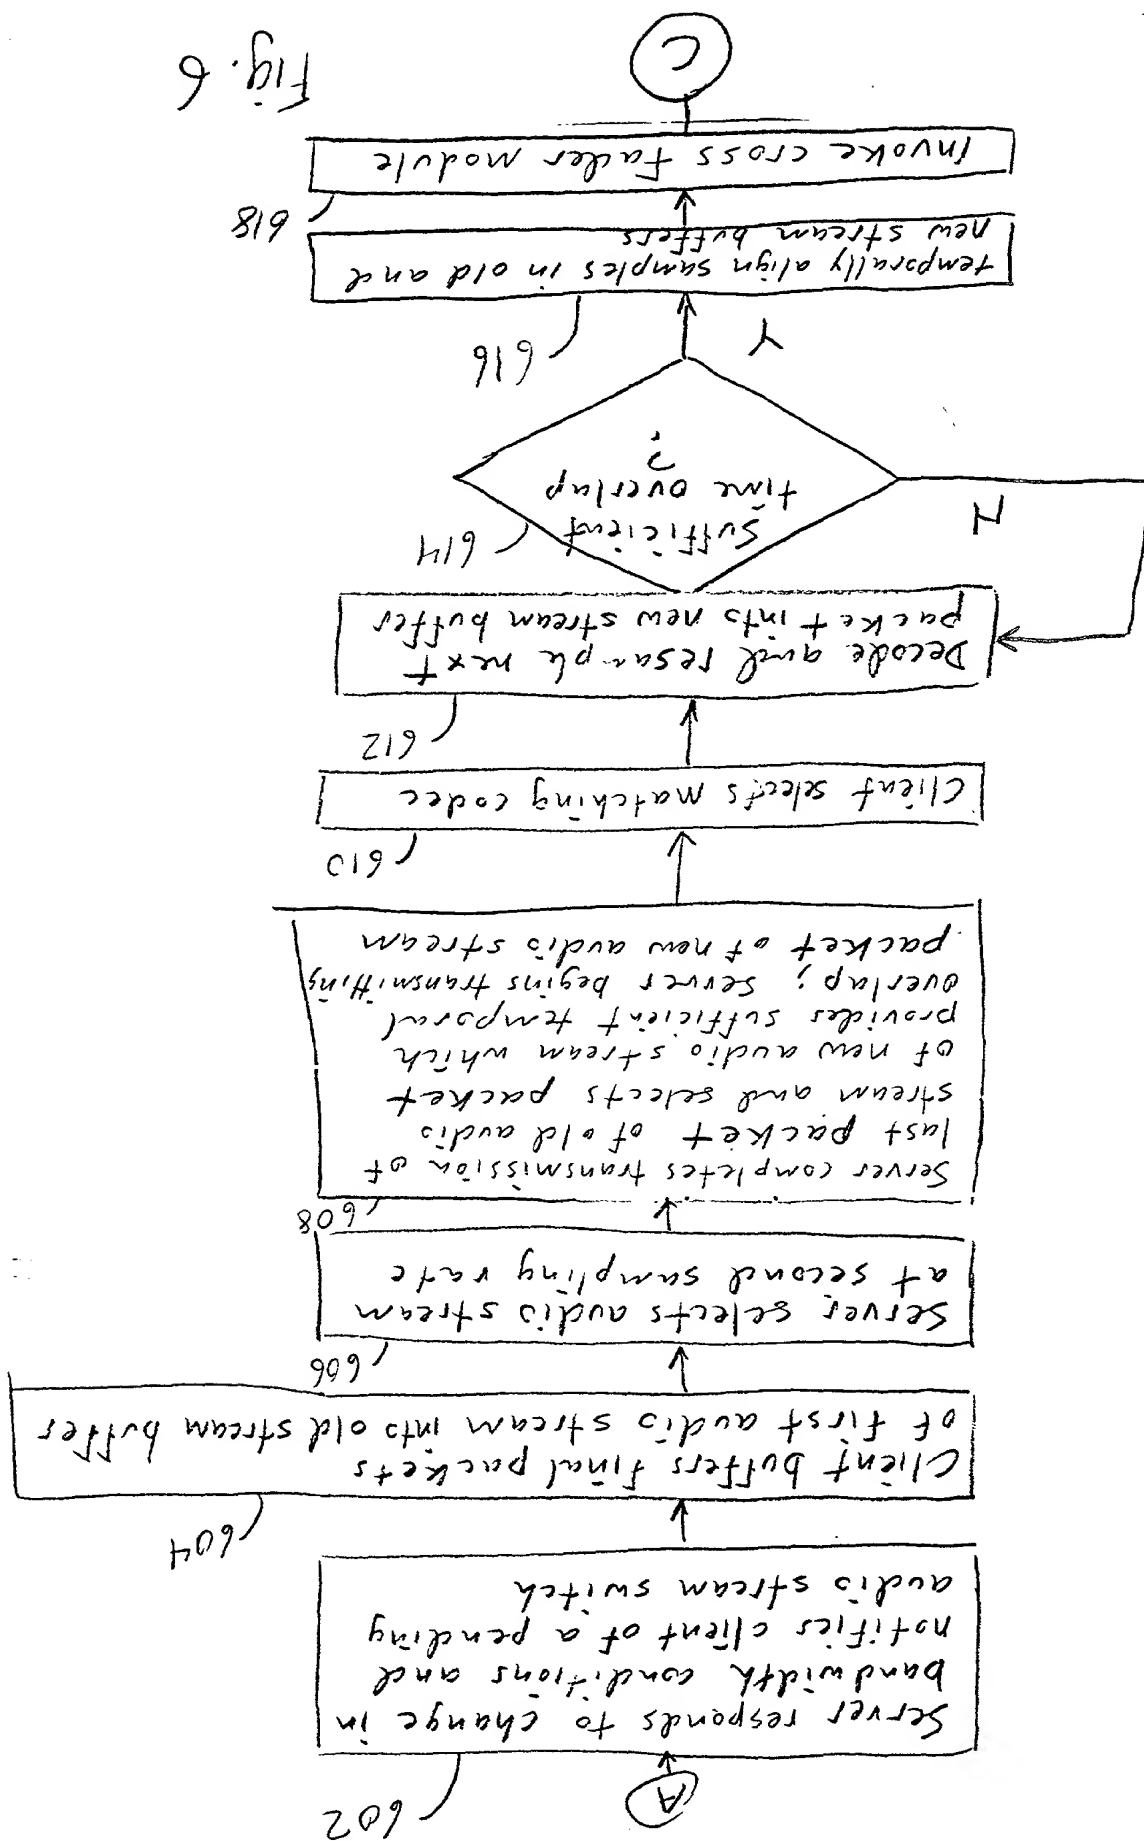 602
A
Server responds to change in
bandwidth conditions and
notifies client of a pending
audio stream switch
604
Client buffers final packets
of first audio stream into old stream buffer
606
Server selects audio stream
at second sampling rate
608
Server completes transmission of
last packet of old audio
stream and selects packet
of new audio stream which
provides sufficient temporal
overlap; server begins transmitting
packet of new audio stream
610
Client selects matching codec
612
Decode and resample next
packet into new stream buffer
614
Sufficient
time overlap
?
N
Y
616
temporally align samples in old and
new stream buffers
618
Invoke cross fader module
C
Fig. 6